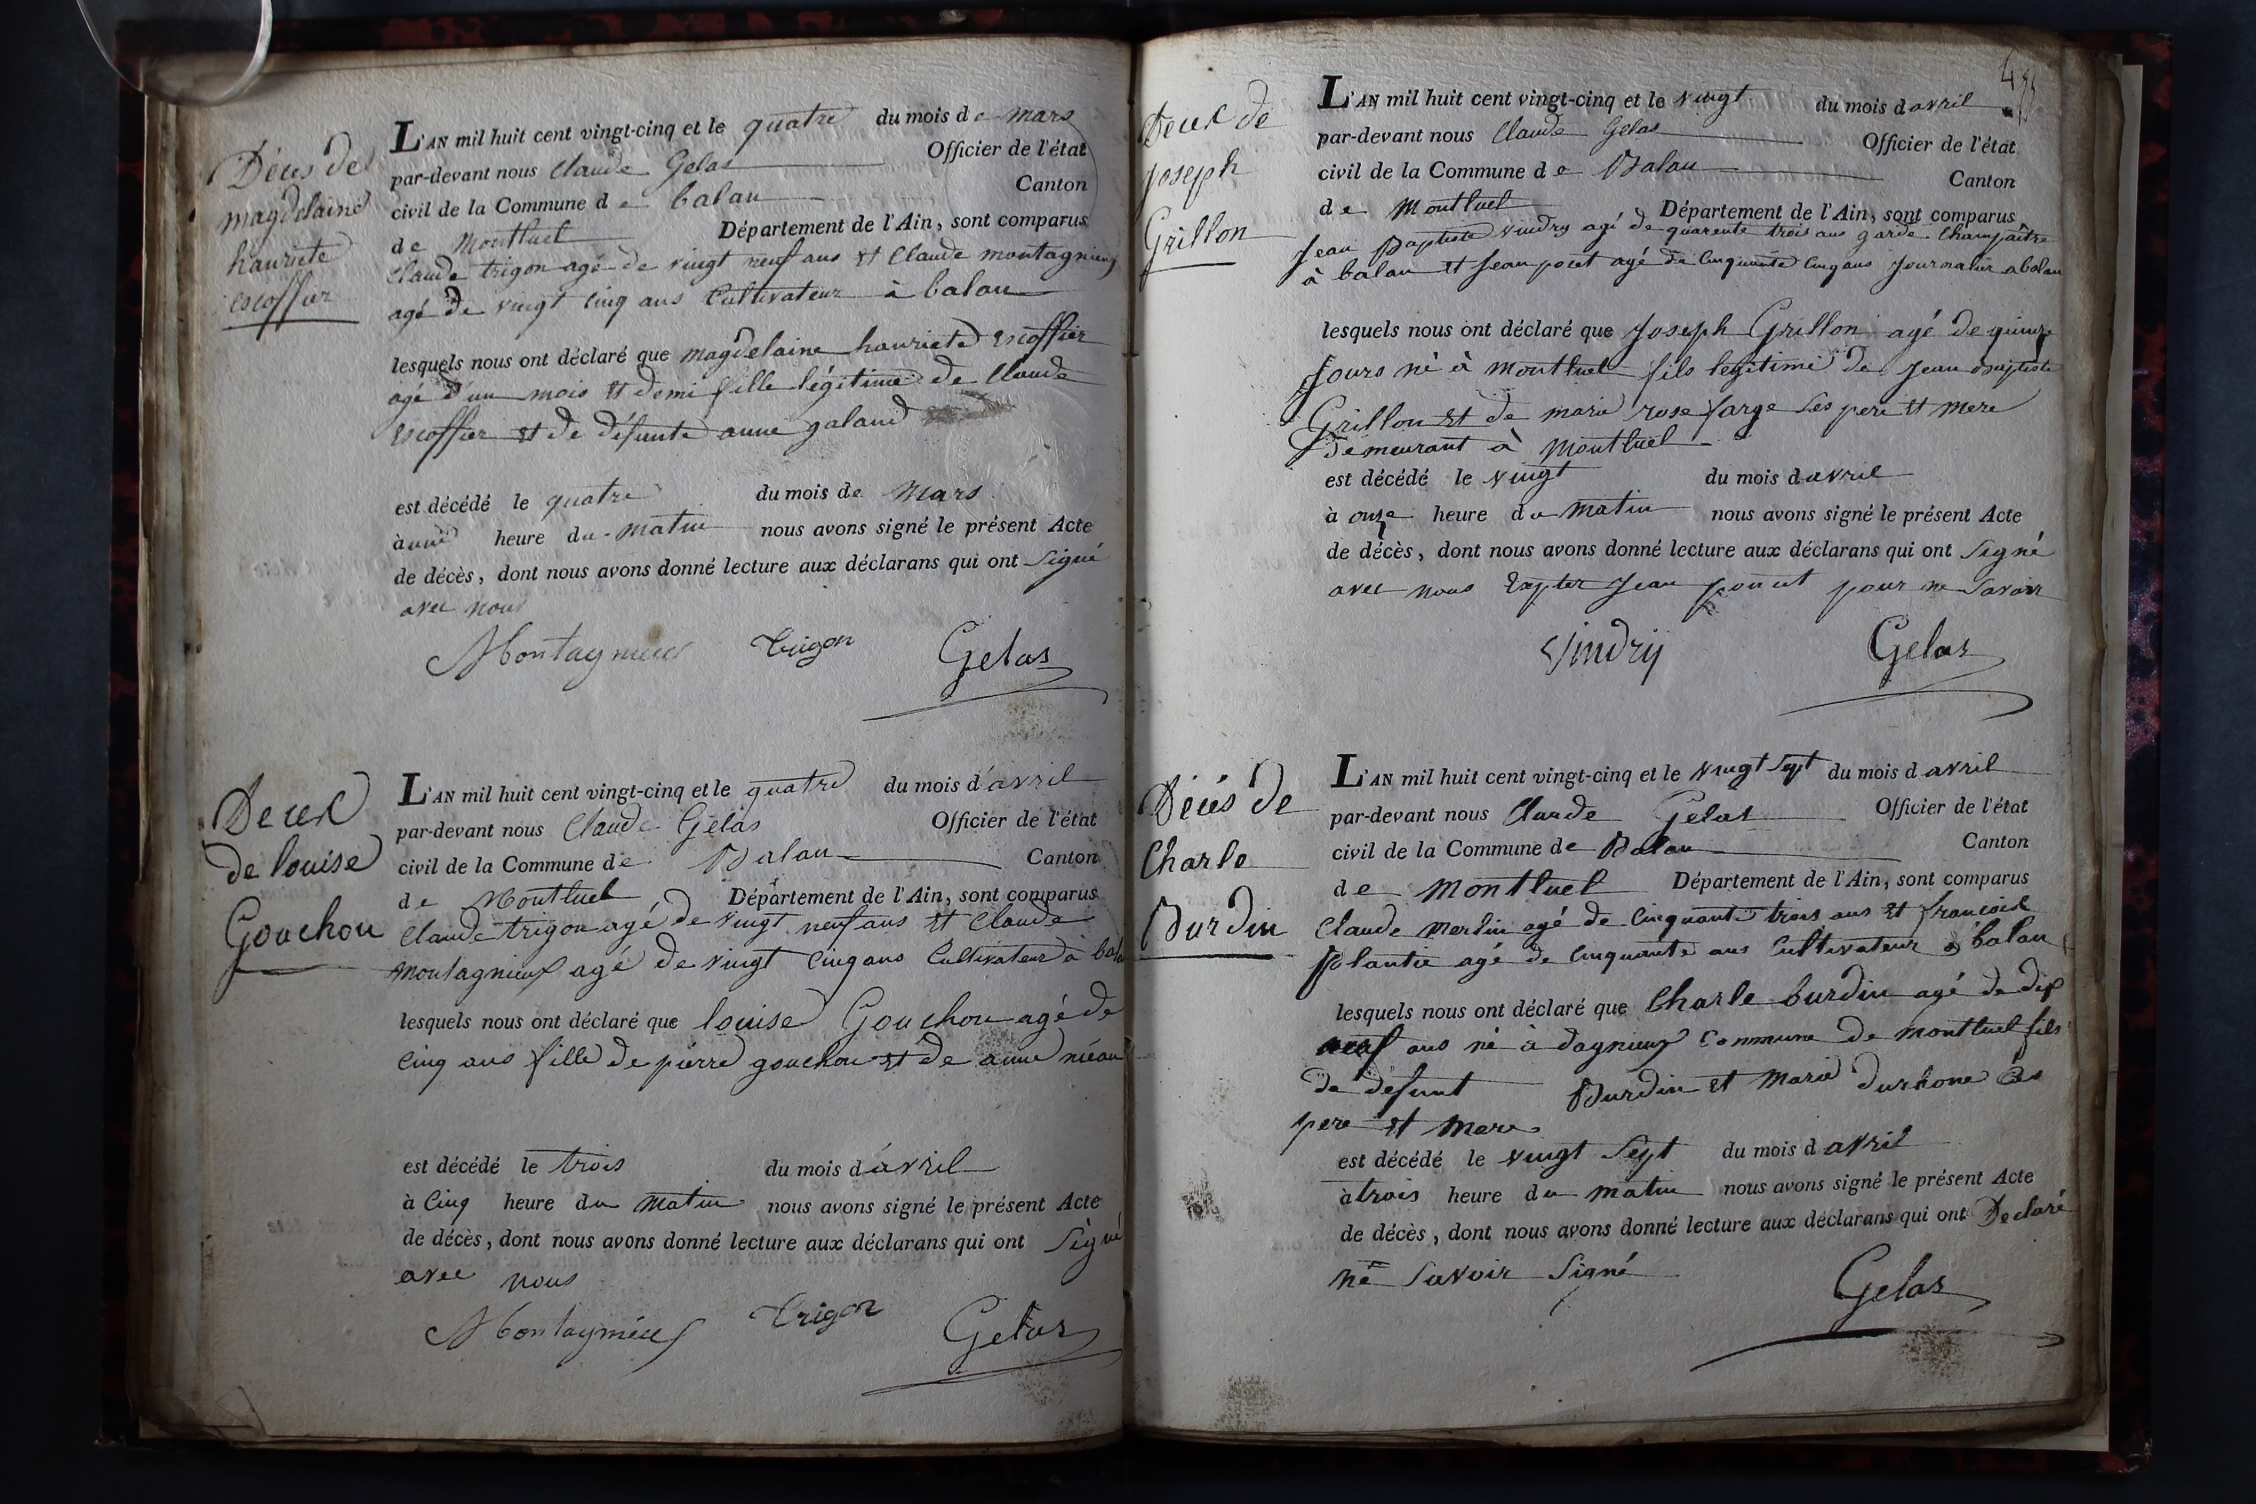 Décès de
magdelaine
hauriete
escoffier
L'AN mil huit cent vingt-cinq et le quatre du mois de mars
par-devant nous Claude Gelas Officier de l'état
civil de la Commune de balan Canton
de Montluel Département de l'Ain, sont comparus
Claude trigon agé de vingt neuf ans et Claude montagnieux
agé de vingt cinq ans Cultivateur à balan
lesquels nous ont déclaré que magdelaine hauriete escoffier
agé d'un mois et demi fille légitime de Claude
escoffier et de défunte anne galand
est décédé le quatre du mois de Mars
à une heure du matin nous avons signé le présent Acte
de décès, dont nous avons donné lecture aux déclarans qui ont signé
avec nous
Montagnieux Trigon Gelas
Deces
de louise
Gouchon
L'AN mil huit cent vingt-cinq et le quatre du mois d'avril
par-devant nous Claude Gelas Officier de l'état
civil de la Commune de Balan Canton
de Montluel Département de l'Ain, sont comparus
Claude trigon agé de vingt neuf ans et Claude
montagnieux agé de vingt cinq ans Cultivateur à bala
lesquels nous ont déclaré que louise Gouchon agé de
cinq ans fille de pierre gouchon et de anne
est décédé le trois du mois d'avril
à Cinq heure du matin nous avons signé le présent Acte
de décès, dont nous avons donné lecture aux déclarans qui ont signé
avec nous
Montagnieux Trigon Gelas
Deces de
joseph
Grillon
L'AN mil huit cent vingt-cinq et le vingt du mois d avril
par-devant nous Claude Gelas Officier de l'état
civil de la Commune de Balan Canton
de Montluel Département de l'Ain, sont comparus
Jean Baptiste vindry agé de quarente trois ans garde Champaître
à balan et Jean agé de Cinquante Cinq ans Journalier a balan
lesquels nous ont déclaré que Joseph Grillon agé de quinze
Jours né à Montluel fils legitime de Jean Baptiste
Grillon et de marie rose farge Ses pere et mere
demeurant à Montluel
est décédé le vingt du mois d avril
à onze heure du Matin nous avons signé le présent Acte
de décès, dont nous avons donné lecture aux déclarans qui ont Signé
avec nous Jean pour ne Savoir
Vindry Gelas
Décés de
Charle
Burdin
L'AN mil huit cent vingt-cinq et le vingt Sept du mois d avril
par-devant nous Claude Gelas Officier de l'état
civil de la Commune de Balan Canton
de Montluel Département de l'Ain, sont comparus
Claude Merlin agé de Cinquante trois ans et françois
plantie agé de Cinquante ans Cultivateur à balan
lesquels nous ont déclaré que Charle burdin agé de dix
neuf ans né à dagneux Commune de Montluel fils
de défunt Burdin et Marie Ses
pere et Mere
est décédé le vingt Sept du mois d avril
à trois heure du matin nous avons signé le présent Acte
de décès, dont nous avons donné lecture aux déclarans qui ont Déclaré
ne Savoir Signé
Gelas